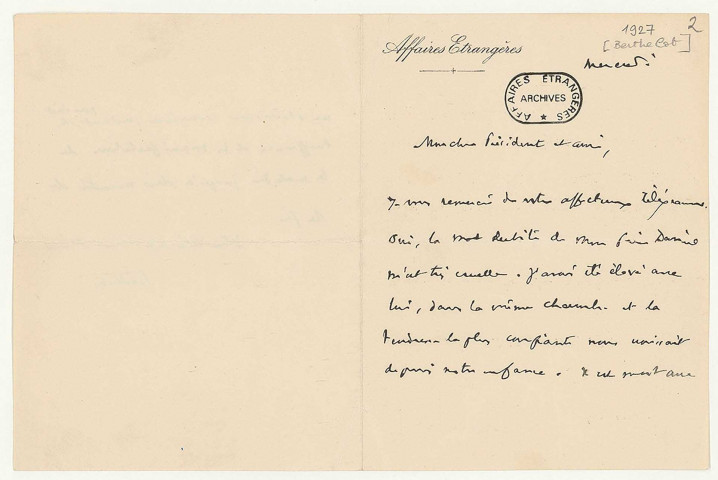 1927
2
[Berthelot]
Affaires Etrangères
Mercredi
AFFAIRES ETRANGÈRES
ARCHIVES
Mon cher Président et ami,
Je vous remercie de votre affectueux télégramme.
Oui, la mort subite de mon frère Daniel
m'est très cruelle. J'avais été élevé avec
lui, dans la même chambre et la
tendresse la plus confiante nous unissait
depuis notre enfance. Il est mort avec